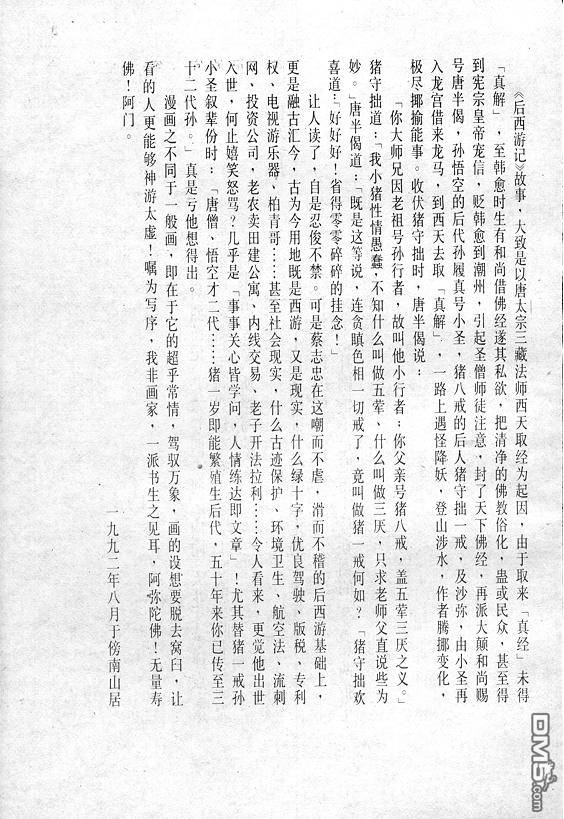 《后西游记》故事，大致是以唐太宗三藏法师西天取经为起因，由于取来「真经」未得
「真解」，至韩愈时生有和尚借佛经遂其私欲，把清净的佛教俗化，蛊或民众，甚至得
到宪宗皇帝宠信，贬韩愈到潮州，引起圣僧师徒注意，封了天下佛经，再派大颠和尚赐
号唐半偈，孙悟空的后代孙履真号小圣，猪八戒的后人猪守拙一戒，及沙弥，由小圣再
入龙宫借来龙马，到西天去取「真解」，一路上遇怪降妖，登山涉水，作者腾挪变化，
极尽揶揄能事。收伏猪守拙时，唐半偈说：
「你大师兄因老祖号孙行者，故叫他小行者；你父亲号猪八戒，盖五荤三厌之义。」
猪守拙道：「我小猪性情愚蠢，不知什么叫做五荤、什么叫做三厌，只求老师父直说些为
妙。」唐半偈道：「既是这等说，连贪瞋色相一切戒了，竟叫做猪一戒何如？」猪守拙欢
喜道：「好好好！省得零零碎碎的挂念！」
让人读了，自是忍俊不禁。可是蔡志忠在这嘲而不虐，滑而不稽的后西游基础上，
更是融古汇今，古为今用地既是西游，又是现实，什么绿十字，优良驾驶、版税、专利
权、电视游乐器、柏青哥……甚至社会现实，什么古迹保护、环境卫生、航空法、流刺
网，投资公司，老农卖田建公寓，内线交易、老子开法拉利……令人看来，更觉他出世
入世，何止嬉笑怒骂？几乎是「事事关心皆学问，人情练达即文章」！尤其替猪一戒孙
小圣叙辈份时：「唐僧、悟空才二代……猪一岁即能繁殖生后代，五十年来你已传至三
十二代孙。」真是亏他想得出。
漫画之不同于一般画，即在于它的超乎常情，驾驭万象，画的设想要脱去窝臼，让
看的人更能够神游太虚！嘱为写序，我非画家，一派书生之见耳，阿弥陀佛！无量寿
佛！阿门。
一九九二年八月于傍南山居
DM5.com